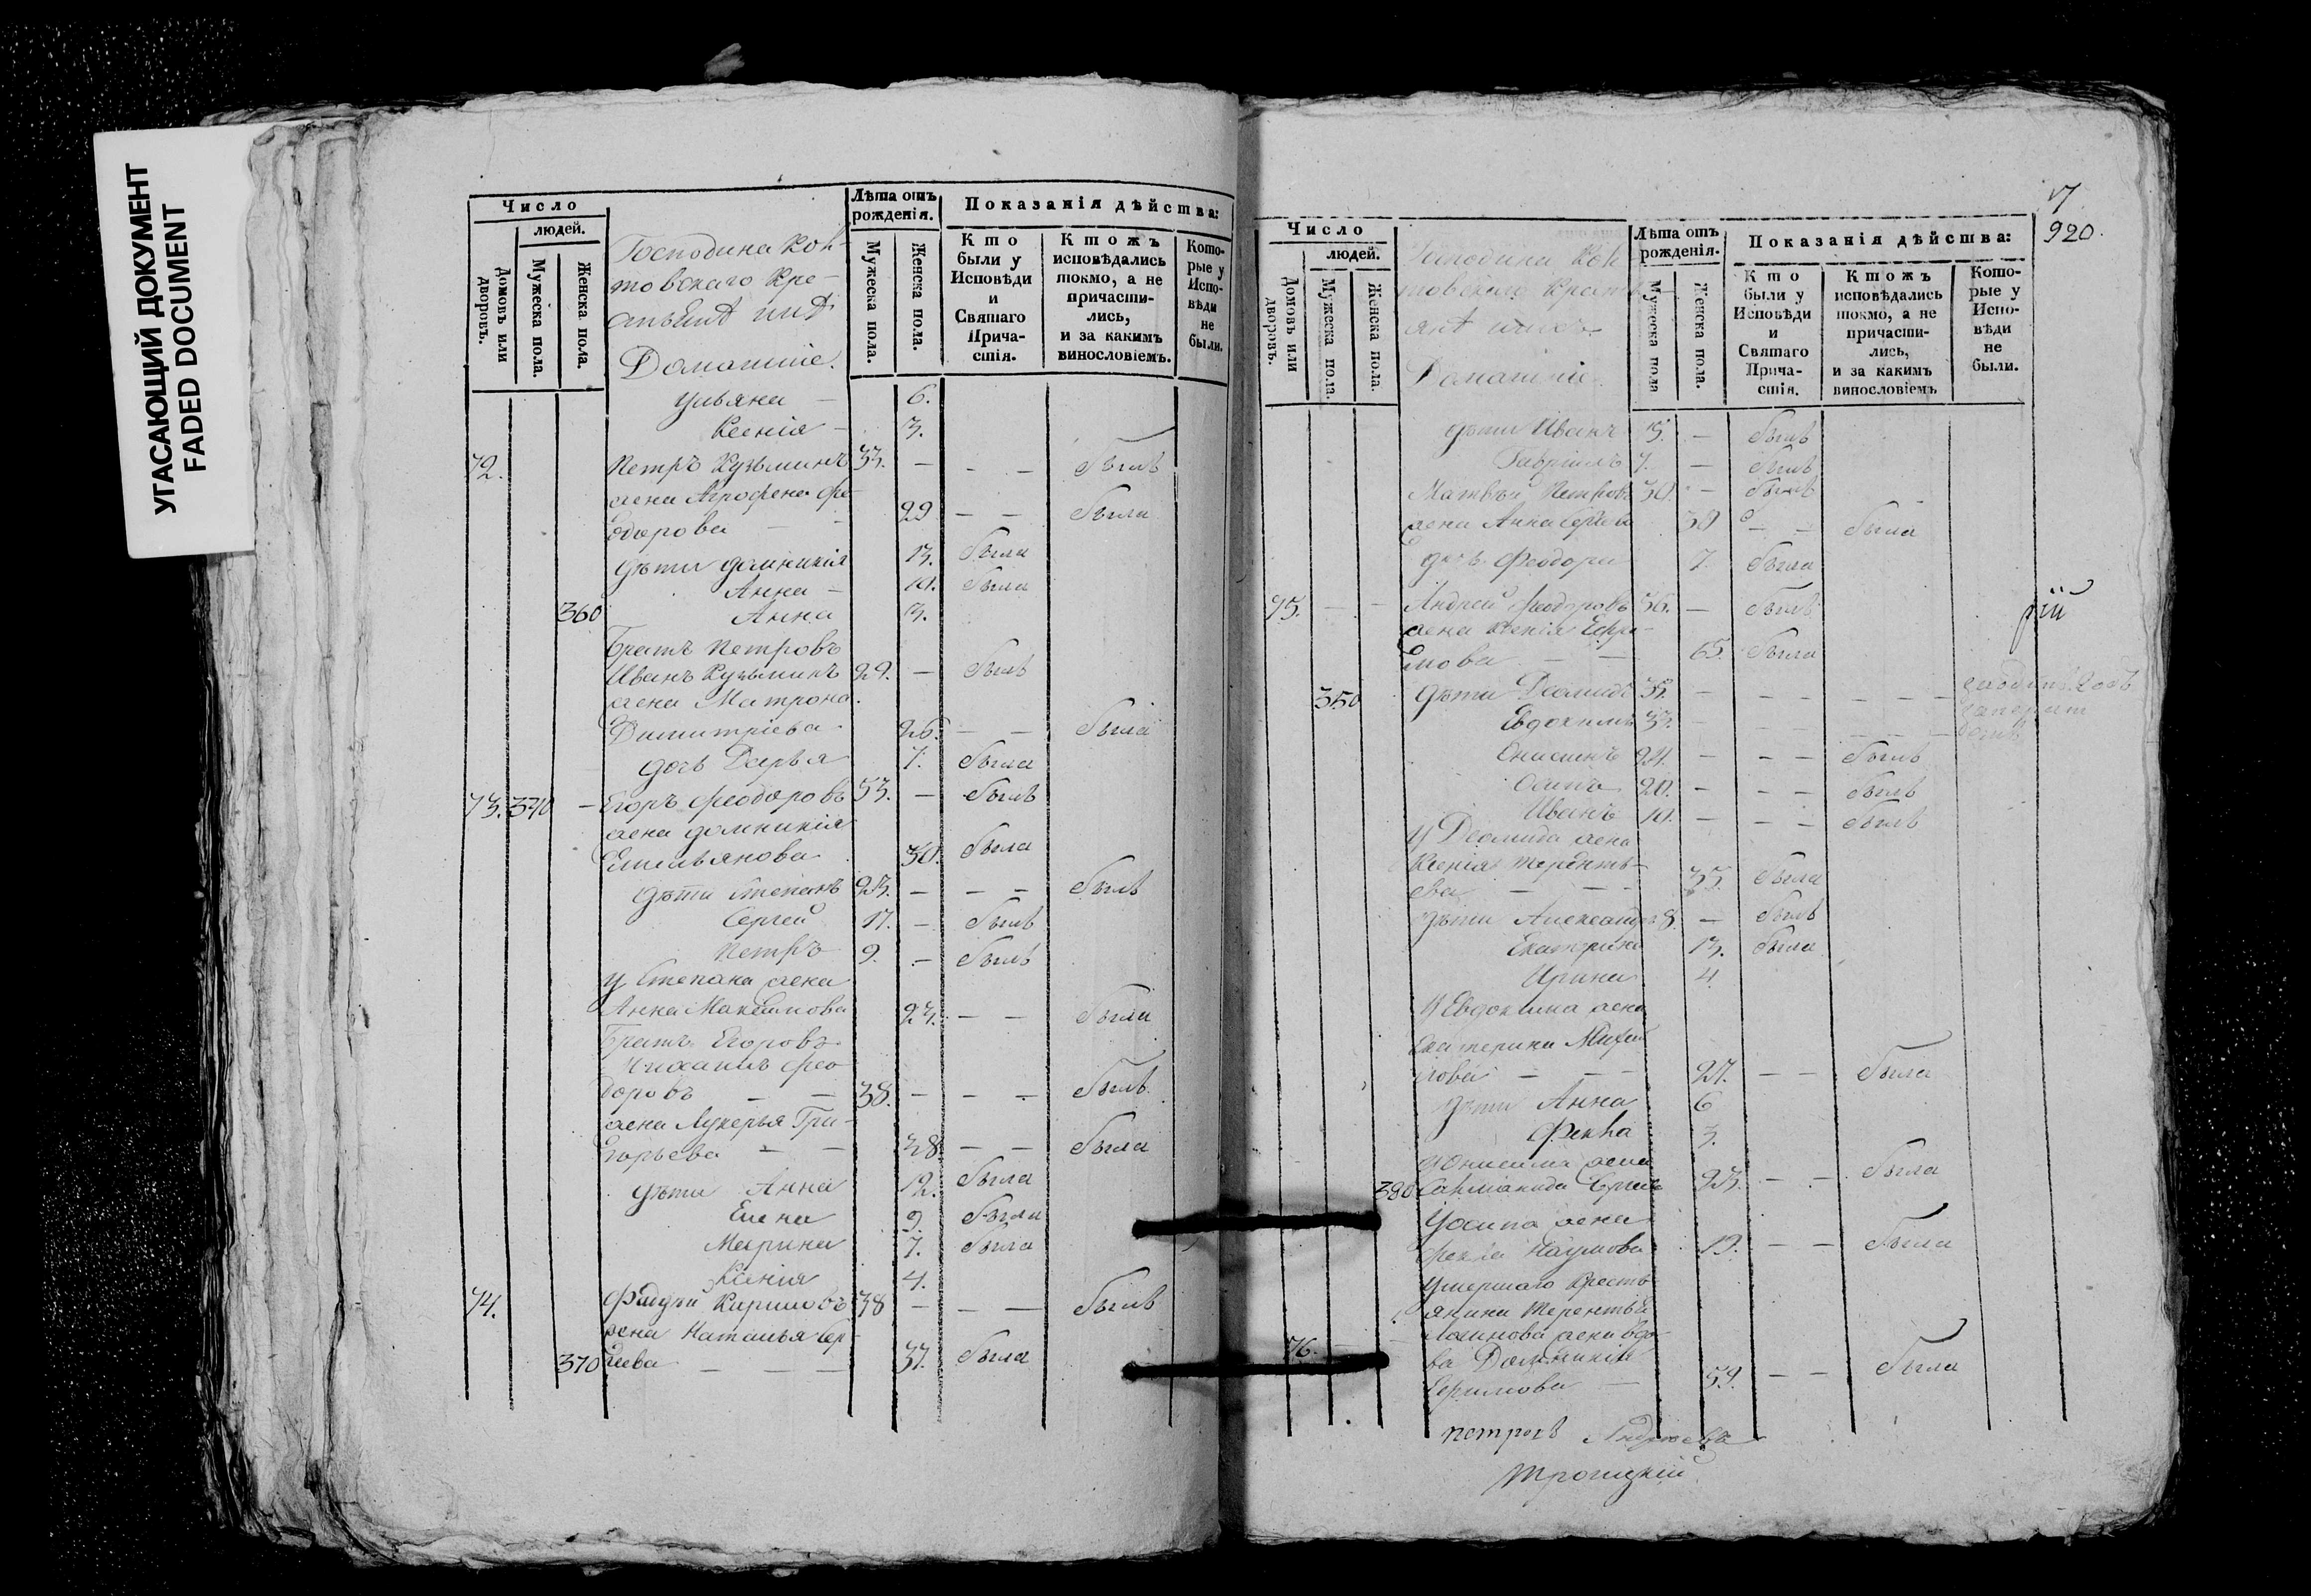 УГАСАЮЩИЙ ДОКУМЕНТ
FADED DOCUMENT
Число
людей.
Домовъ или дворовъ.
Мужеска пола.
Женска пола.
Господина Кох-
товскаго Кре-
Домашніе.
Лѣта отъ рожденія.
Мужеска пола.
Женска пола.
Показанія дѣйства:
Кто были у Исповѣди и Святаго Прича-стія.
Ктожъ исповѣдались токмо, а не причасти-лись, и за какимъ винословіемъ.
Кото-рые у Испо-вѣди не были.
Ульяна — 6.
Ксенія — 3.
72. Петръ Кузьминъ 33. — — — былъ
жена Агрофена Фе-
одорова — — 29 — — была
дѣти Домникія 13. была
Анна — 10. была
360 Анна 3.
Братъ Петровъ
Иванъ Кузьминъ 29. — былъ
жена Матрона
Димитріева 26. — — была
дочь Дарья 7. была
73. 340 — Егоръ Феодоровъ 53. — былъ
жена Домникія
Емильянова 50. была
дѣти Степанъ 23. — — — былъ
Сергей 17. — былъ
Петръ 9. — былъ
У Степана жена
Анна Максимова 23. — — была
Братъ Егоровъ
Михаилъ Фео-
доровъ — — 38. — — — былъ
жена Лукерья Гри-
горьева — — 38 — — была
дѣти Анна 12. была
Елена 9. была
Марина 7. была
Ксенія 4.
74. Фадѣй Кириловъ 38 — — — былъ
жена Наталья Сер-
370 геева — — — 37. была
920.
Число
людей.
Домовъ или дворовъ.
Мужеска пола.
Женска пола.
Господина Кох-
товскаго
Домашніе.
Лѣта отъ рожденія.
Мужеска пола
Женска пола.
Показанія дѣйства:
Кто были у Исповѣди и Святаго Прича-стія.
Ктожъ исповѣдались токмо, а не причасти-лись, и за какимъ винословіемъ
Кото-рые у Испо-вѣди не были.
дѣти Иванъ — былъ
Гавріилъ 7. — былъ
Матвѣй Петровъ 30. — былъ
жена Анна 30 — — была
дочь Феодора 7. была
75. — — Андрей Феодоровъ 56. — былъ
рій
жена Ксенія Ефре-
мова — — 65. была
350 дѣти Деомидъ — — — —
Евдокимъ 33. — — — —
Онисимъ 24. — — — былъ
Осипъ 20. — — — былъ
Иванъ 10. — — — былъ
У Деомида жена
Ксенія Теренть-
ева — — 35. была
дѣти Александръ 8. — былъ
Екатерина 13. была
Ирина 4.
У Евдокима жена
Екатерина Михай
лова — — 27. — — была
дѣти Анна 6
Фекла 3.
У Онисима жена
380 23. — — была
У Осипа жена
Фекла Наумова 19. — — была
Умершаго кресть
янина Терентья
Логинова жена вдо-
76. — ва Домникія
Ефимова — 59. — — была
Петровъ Андреевъ
Троицкій